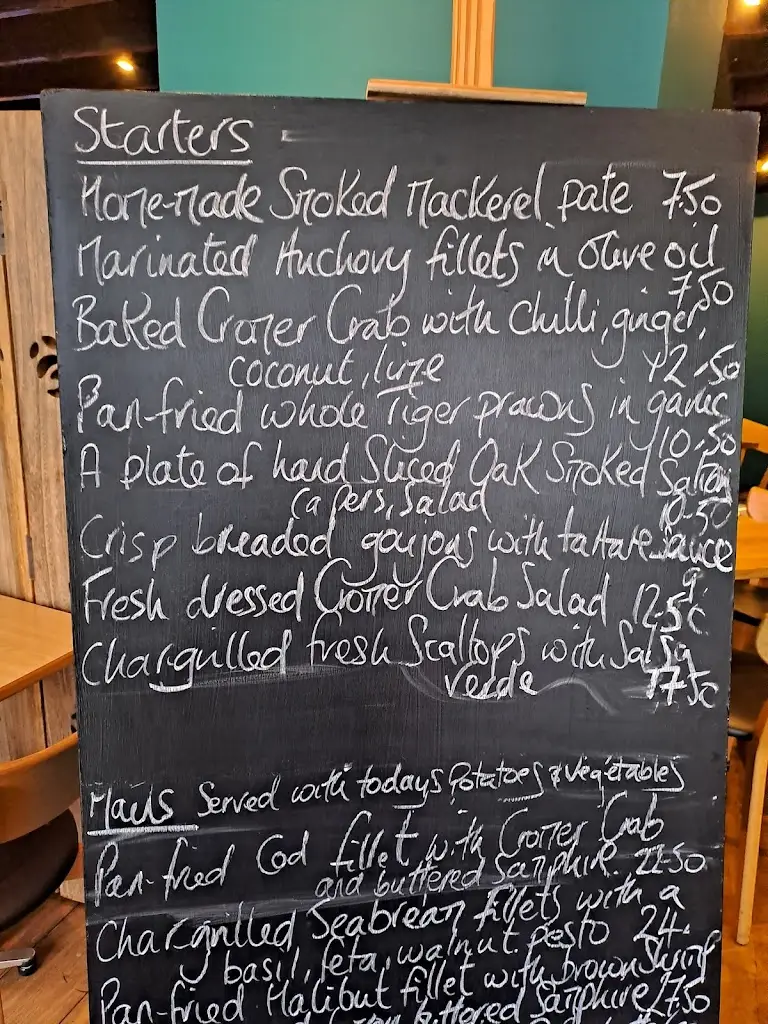 Starters -
Home-made Smoked Mackerel pate 7.50
Marinated Anchovy fillets in Olive oil
7.50
Baked Cromer Crab with chilli, ginger,
coconut, lime 12.50
Pan-fried whole Tiger prawns in garlic
10.50
A plate of hand Sliced Oak Smoked Salmon
capers, salad 10.50
Crisp breaded goujons with tartare sauce
9.
Fresh dressed Cromer Crab Salad 12.50
Chargrilled fresh Scallops with Salsa
Verde 17.50
Mains Served with todays Potatoes & vegetables
Pan-fried Cod fillet with Cromer Crab
and buttered Samphire. 22.50
Chargrilled Seabream fillets with a
basil, feta, walnut pesto 24.
Pan-fried Halibut fillet with brown Shrimp
buttered samphire 27.50